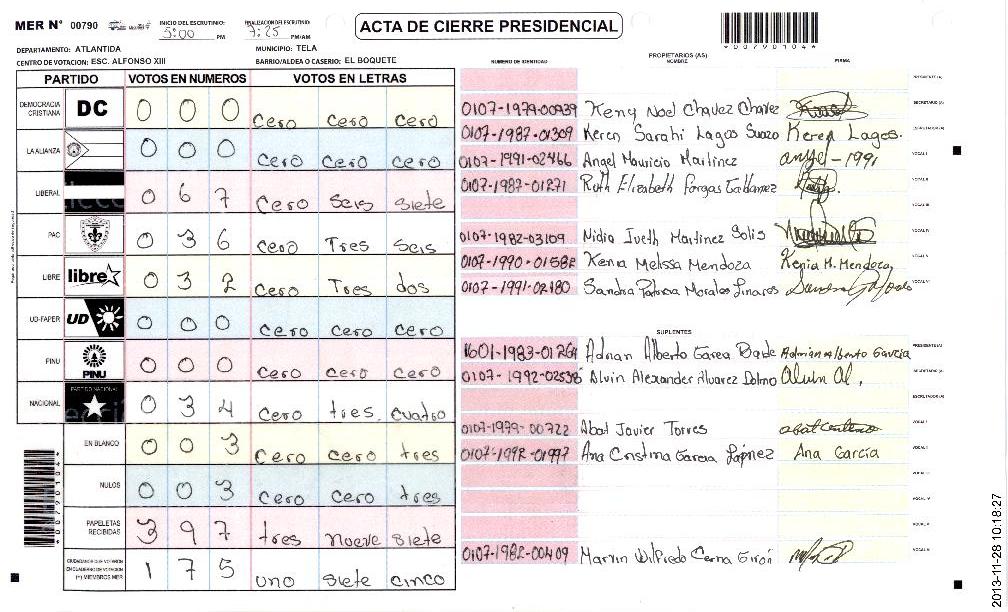 MER N° 00790
INICIO DEL ESCRUTINIO: 5:00 PM
FINALIZACION DEL ESCRUTINIO: 7:25 PM/AM
ACTA DE CIERRE PRESIDENCIAL
*00790104*
DEPARTAMENTO: ATLANTIDA
MUNICIPIO: TELA
CENTRO DE VOTACION: ESC. ALFONSO XIII
BARRIO/ALDEA O CASERIO: EL BOQUETE
PARTIDO VOTOS EN NUMEROS VOTOS EN LETRAS
DEMOCRACIA CRISTIANA DC 0 0 0 Cero Cero Cero
LA ALIANZA 0 0 0 Cero Cero Cero
LIBERAL 0 6 7 Cero Seis Siete
PAC 0 3 6 Cero Tres Seis
LIBRE libre 0 3 2 Cero Tres dos
UD-FAPER UD 0 0 0 Cero Cero Cero
PINU PINU 0 0 0 Cero Cero Cero
NACIONAL PARTIDO NACIONAL 0 3 4 Cero tres cuatro
EN BLANCO 0 0 3 Cero Cero tres
NULOS 0 0 3 Cero Cero tres
PAPELETAS RECIBIDAS 3 9 7 tres nueve siete
CIUDADANOS QUE VOTARON EN CUADERNO DE VOTACION (*) MIEMBROS MER 1 7 5 uno siete cinco
*00790104*
NUMERO DE IDENTIDAD
PROPIETARIOS (AS)
NOMBRE
FIRMA
PRESIDENTE (A)
0107-1979-00939 Keny Noel Chavez Chavez SECRETARIO (A)
0107-1987-01309 Keren Sarahi Lagos Suazo Keren Lagos.
0107-1991-02466 Angel Mauricio Martinez angel-1991 VOCAL I
0107-1987-01271 Ruth Elizabeth VOCAL II
VOCAL III
0107-1982-03109 Nidia Iveth Martinez Solis VOCAL IV
0107-1990-01582 Kenia Melissa Mendoza Kenia M. Mendoza, VOCAL V
0107-1991-02180 Sandra Patricia Morales Linares VOCAL VI
SUPLENTES
1601-1983-01264 Adrian Alberto Garcia Adrian Alberto Garcia PRESIDENTE (A)
0107-1992-02538 Alvin Alexander Alvarez Alvin Al. SECRETARIO (A)
ESCRUTADOR (A)
0107-1979-00722 Abat Javier Torres VOCAL I
0107-1992-01997 Ana Cristina Garcia Ana García VOCAL II
VOCAL III
VOCAL IV
VOCAL V
0107-1982-00409 Marvin Wilfredo Cerna Girón VOCAL VI
2013-11-28 10:18:27